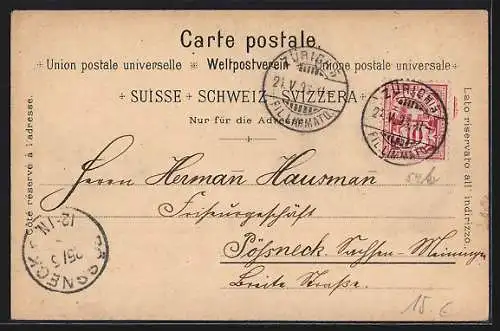 Carte postale.
Union postale universelle Weltpostverein Unione postale universale
SUISSE SCHWEIZ SVIZZERA
Nur für die Adresse.
Côté réservé à l'adresse.
Lato riservato all' indirizzo.
ZÜRICH
FIL. LIMMATQ.
ZÜRICH
FIL. LIMMATQ.
10
Herrn Hermañ Hausmañ
Friseurgeschäft
Pössneck. Sachsen-Meiningen
Breite Straße.
PÖSSNECK
15.€